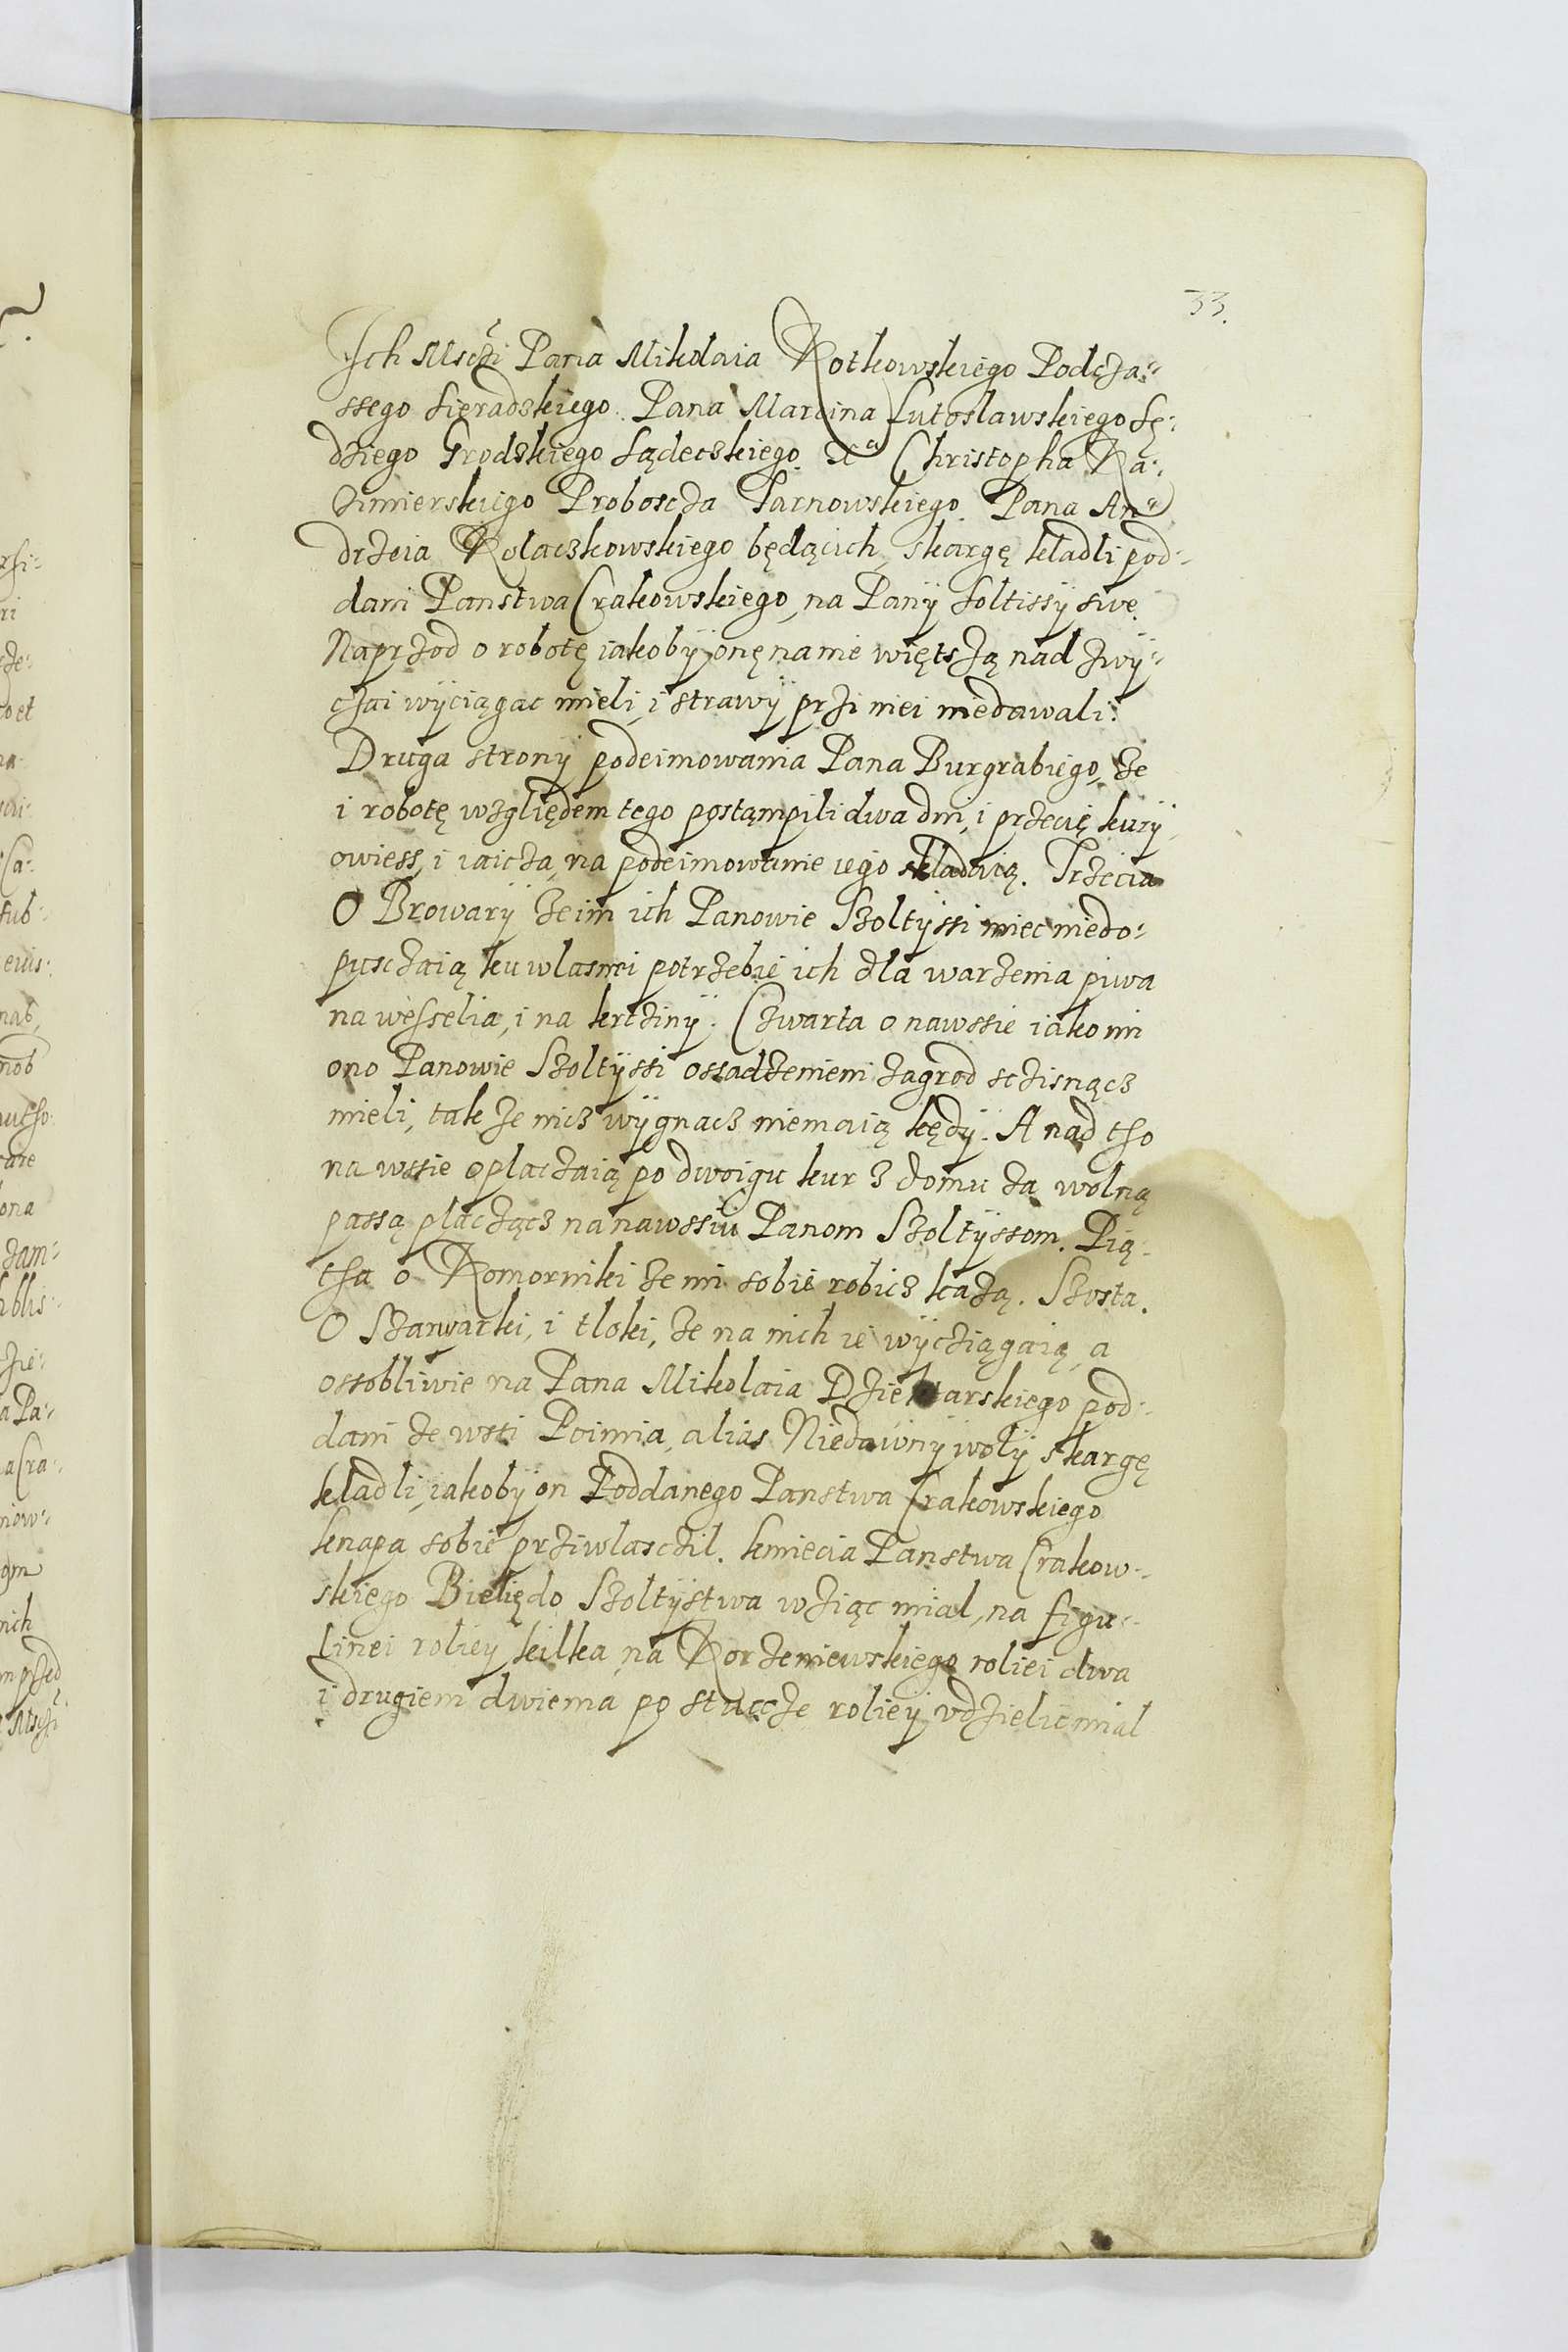 33.
Ich Msczi Pana Mikolaia Rotkowskiego Podcza:
ssego Sieradskiego. Pana Marcina Lutoslawskiego Sę:
dziego Grodskiego Sądecskiego. Xa Christopha Ka:
zimierskiego Proboscza Tarnowskiego. Pana An:
drzeia Kolaczkowskiego będącich, skargę kladli pod:
dani Panstwa Crakowskiego, na Pany Soltissy swe.
Naprzod o robotę iakoby onę na nie więtszą nad zwy:
czai wyciągac mieli, i strawy przi niei niedawali.
Druga strony podeimowania Pana Burgrabiego, że
i robotę względem tego postąmpili dwa dni, i przecię kury,
owiess, i iaicza, na podeimowanie iego skladaią. Trzecia
O Browary że im ich Panowie Szoltyssi miec niedo:
pusczaią ku wlasnei potrzebie ich dla warzenia piwa
na wesselia, i na krcziny. Czwarta o nawssie iako mi
ono Panowie Szoltyssi ossadzeniem zagrod sczisnącz
mieli, tak że nicz wygnacz niemaią kędy. A nad tho
na wssie oplaczaią po dwoigu kur z domu za wolną
passą placzącz na nawssiu Panom Szoltyssom. Pią:
tha o Komorniki że mi sobie robicz każą. Szosta.
O Szarwarki, i tloki, że na nich ie wycziągaią, a
ossobliwie na Pana Mikolaia Dzie arskiego pod:
dani ze wsti Poimia, alias Niedawny woly skargę
kladli, iakoby on Poddanego Panstwa Crakowskiego
knapa sobie prziwlasczil. kmiecia Panstwa Crakow:
skiego Bielię do Szoltystwa wziąc mial, na figu:
linei roliey kilka, na Korzeniewskiego roliei dwa
i drugiem dwiema po stuccze roliey udzielic mial